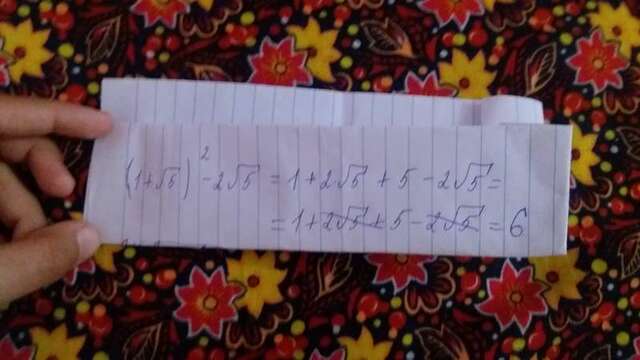 (1+√5)² - 2√5 = 1 + 2√5 + 5 - 2√5 =
= 1 + 2√5 + 5 - 2√5 = 6